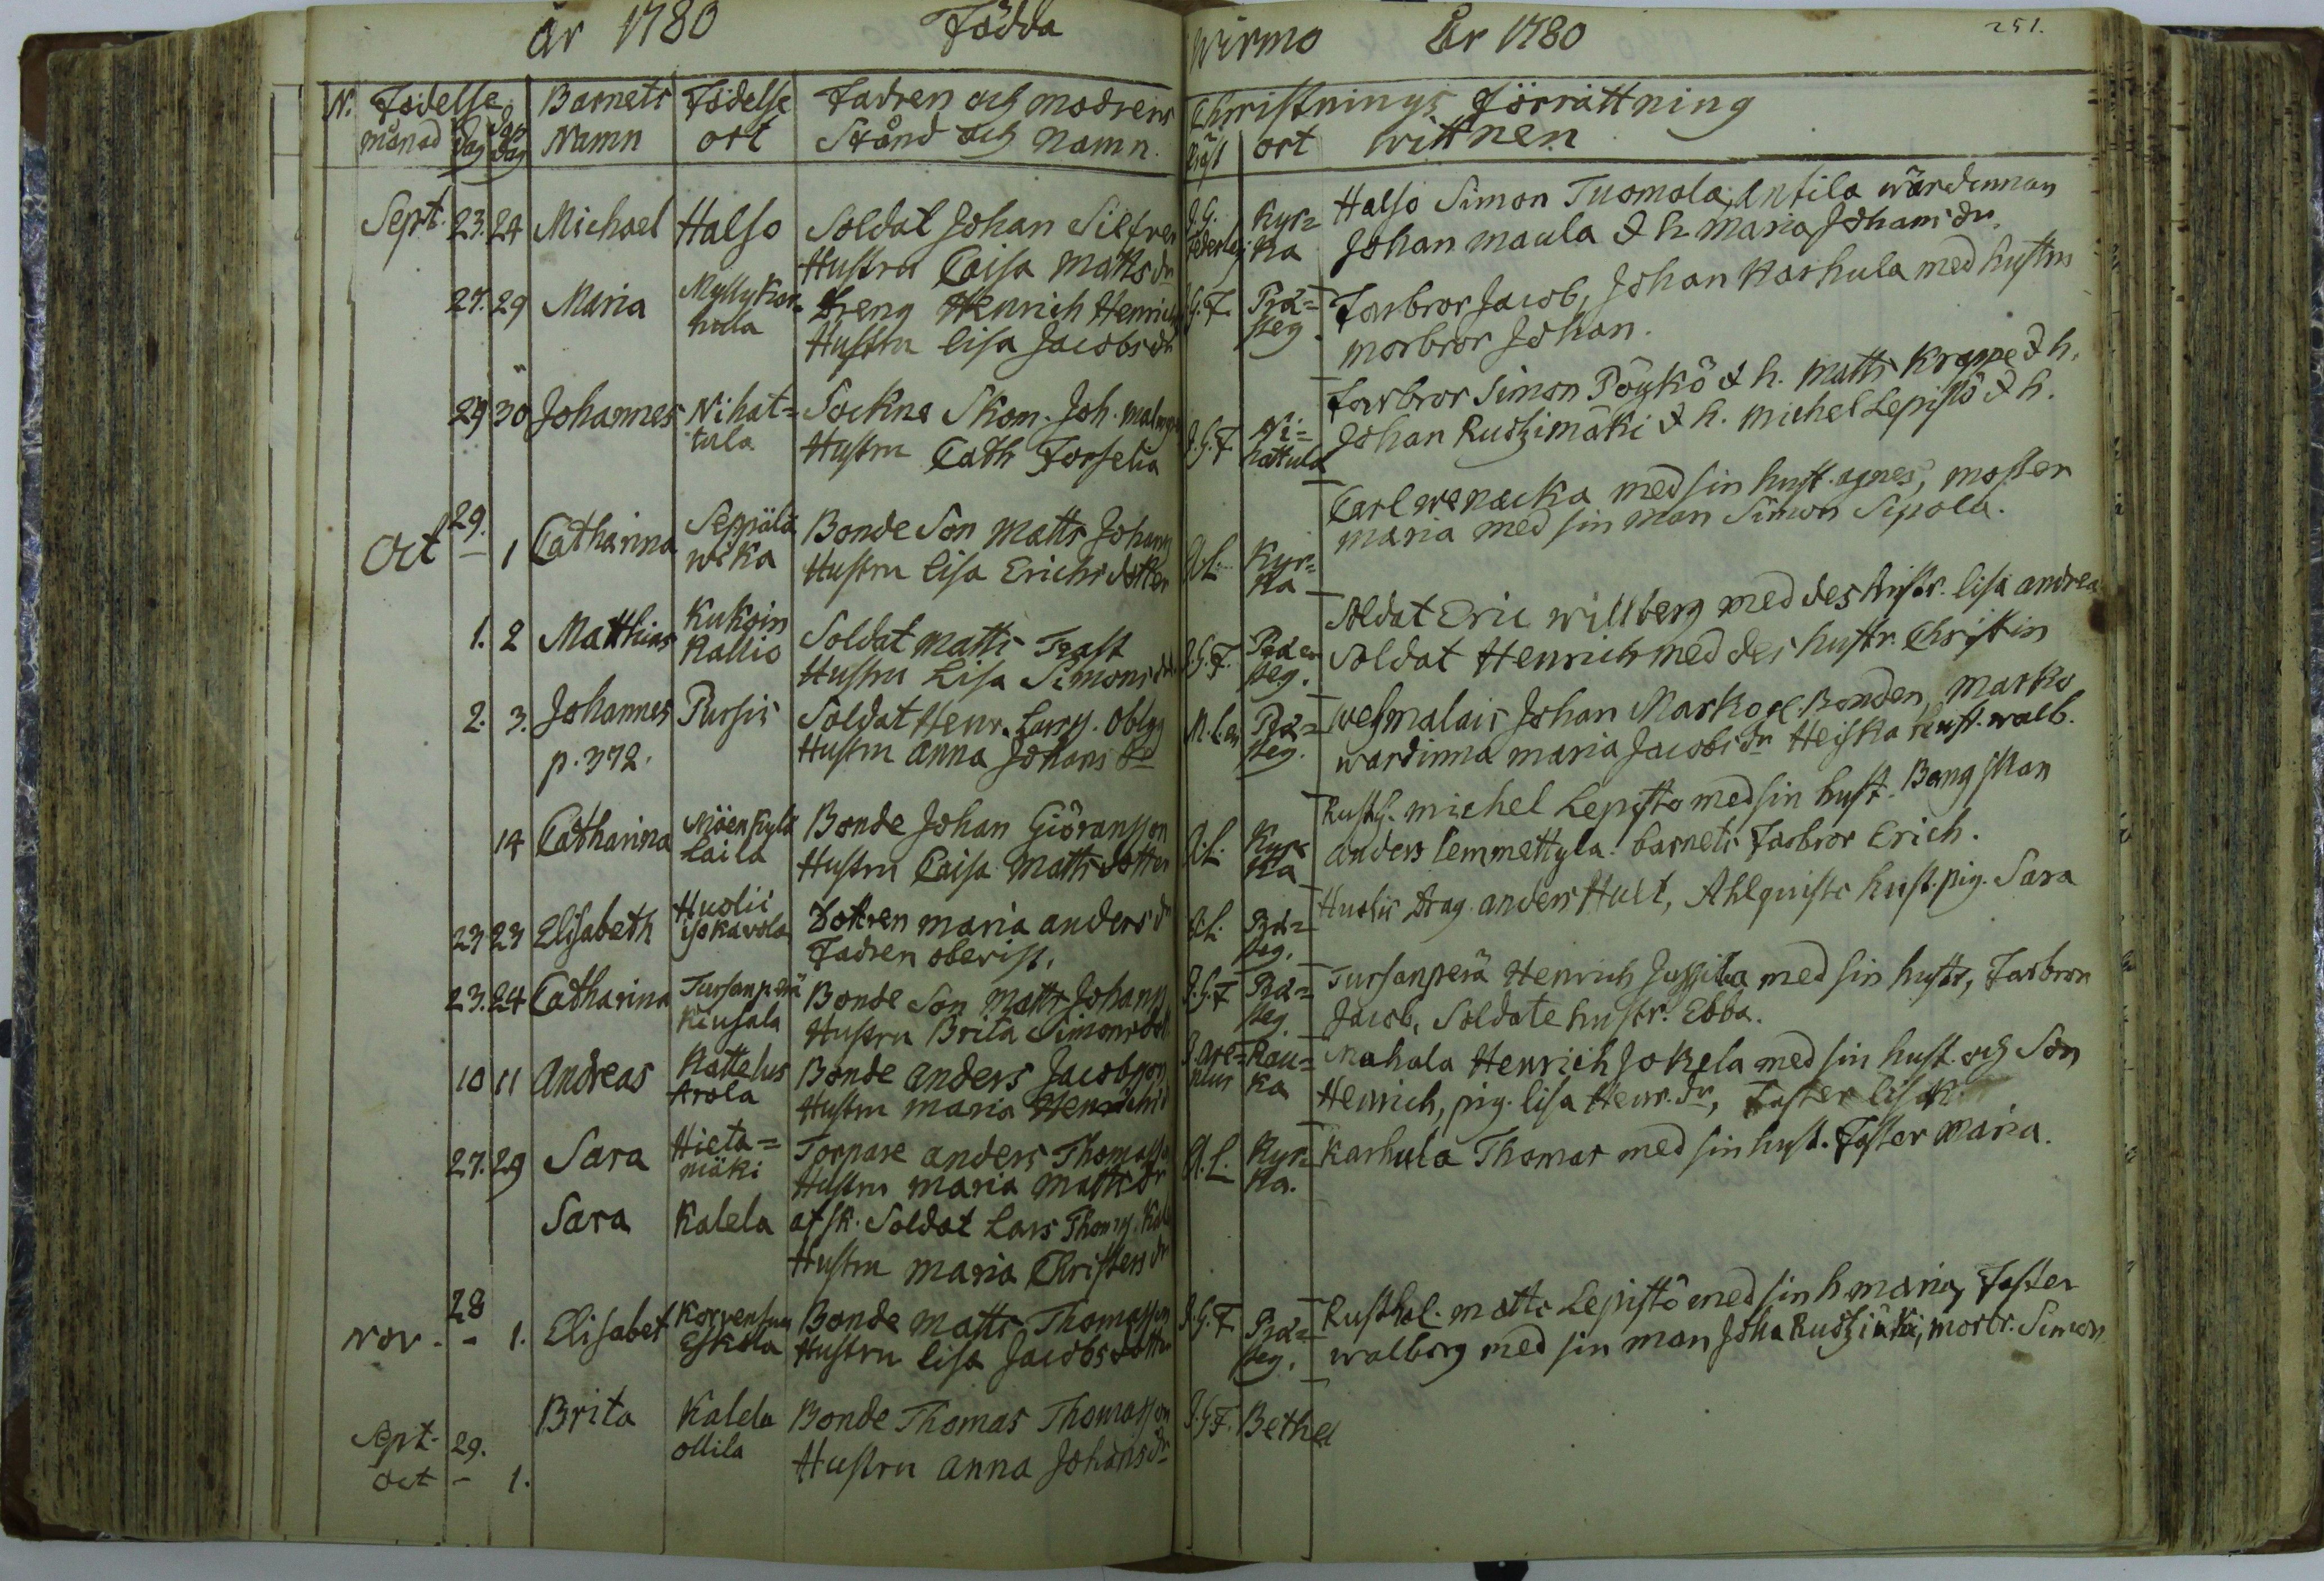 år 1780 Födda
N. Födelse Barnets Födelse Fadren och modrens
månad dag Namn ort Stånd och Namn.
Sept. 23. 24 Michael Halso Soldat Johan Silfver
Hustru Caisa Matts dr
27. 29 Maria Myllykar- Dreng Henrich Henrichs
hula Hustru lisa Jacobs dr
29 30 Johannes Nihat= Sockne Skom. Joh. malmgr
tula Hustru Cath Forselia
29. Seppälä Bonde Son Matts Johans
Oct – 1 Catharina wika Hustru lisa Erichs dotter
1. 2 Matthias Kukoin Soldat Matts Trast
Kallio Hustru Lisa Simons dr
2. 3. Johannes Pursis Soldat Henr. Larss. Oblyg
p. 372. Hustru Anna Johans dr
14 Catharina Mäenkylä Bonde Johan Giöransson
Laila Hustru Caisa Matts dotter
23 23 Elisabeth Huolis Dotren maria anders dr
isokavola Fadren oberist.
23. 24 Catharina Tursanperä Bonde Son Matts Johanss
Kiusala Hustru Brita Simons dot
10 11 Andreas Kattelus Bonde anders Jacobsson
Arola Hustru maria Henrichs
27. 29 Sara Hieta= Torpare anders Thomasso
mäki Hustru maria matts dr
Sara Kalela afsk. Soldat Lars Thoms. Kal
Hustru maria Christers dr
28 Korvensuu Bonde Matts Thomasson
nov. - 1. Elisabet Eskola Hustru lisa Jacobs dotter
Brita Kalela Bonde Thomas Thomasson
Sept. 29. ollila Hustru anna Johans dr
oct – 1.
Wirmo År 1780 251.
Christnings förrättning
Präst ort wittnen
J.G. Kyr= Halso Simon Tuomola, Antila wärdinnan
Federley ka Johan maula & h. Maria Johans dr.
J.G.F. Prä= Farbror Jacob, Johan Karhula med hustru
steg morbror Johan.
Farbror Simon Pöykö & h. Matts Krappe & h.
J.G.F. Ni= Johan Rustimäki & h. michel Lepistö & h.
hattula
Carl wanacka med sin hust. agnes, moster
A.L. Kyr= maria med sin man Simon Sipola.
ka
Soldat Eric willberg med des hustr. lisa andrea
J.G.F. Präs Soldat Henrich med des hustr. Christin
steg.
Prä= wehmalais Johan Marko gl. Bonden, Marko
steg. wärdinna maria Jacobs dr Heiska hust. walb.
Rusth. michel Lepistö med sin hust. Bang man
A.L. Kyr= anders lemmettyla. barnets Farbror Erich.
ka
A.L. Prä= Huolis Drag. anders Hult, Ahlquists hust. pig. Sara
steg.
J.G.F Prä= Tursanperä Henrich Jussila med sin hustr, Farbror
steg Jacob, Soldate hustr. Ebba.
Rau= Mahala Henrich Jokela med sin hust. och Son
ka Henrich, pig. lisa Henr. dr, Faster lisa
A.L. Kyr= Karhula Thomas med sin hust. Faster Maria.
ka.
J.G.F. Prä= Rusthol. matts Lepistö med sin h maria, Faster
steg. walborg med sin man Joha Rustimäki, morbr. Simon
J.G.F. Bethel